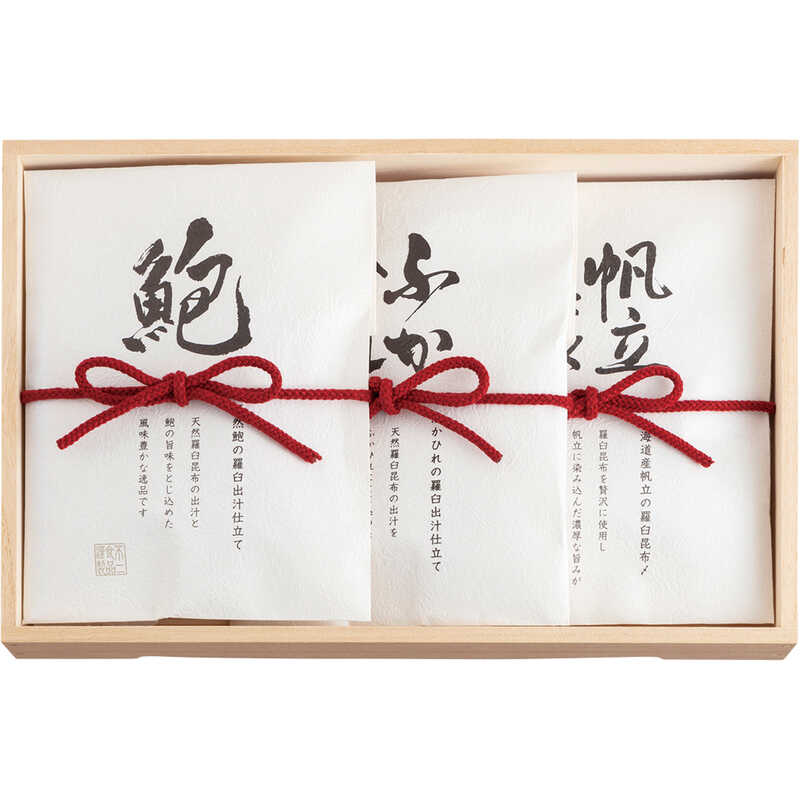 鮑
然鮑の羅臼出汁仕立て
天然羅臼昆布の出汁と
鮑の旨味をとじ込めた
風味豊かな逸品です
不二
食品
謹製
ふか
かひれの羅臼出汁仕立て
天然羅臼昆布の出汁を
帆立
海道産帆立の羅臼昆布〆
羅臼昆布を贅沢に使用し
帆立に染み込んだ濃厚な旨みが